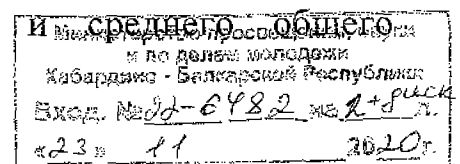 и среднего общего
Министерство просвещения, науки
и по делам молодежи
Кабардино - Балкарской Республики
Вход. № 22-6482 на 2+диск л.
«23» 11 2020г.